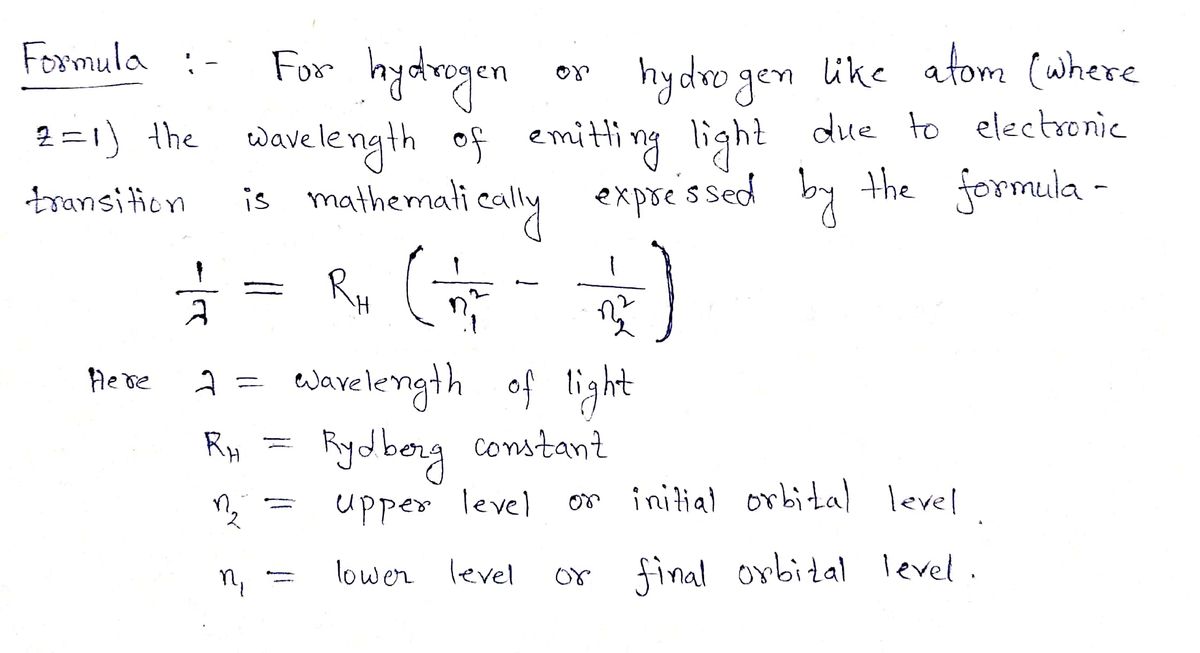 Formula :- For hydrogen or hydrogen like atom (where
z=1) the wavelength of emitting light due to electronic
transition is mathematically expressed by the formula -
1/λ = R_H (1/n₁² - 1/n₂²)
Here λ = wavelength of light
R_H = Rydberg constant
n₂ = upper level or initial orbital level.
n₁ = lower level or final orbital level.